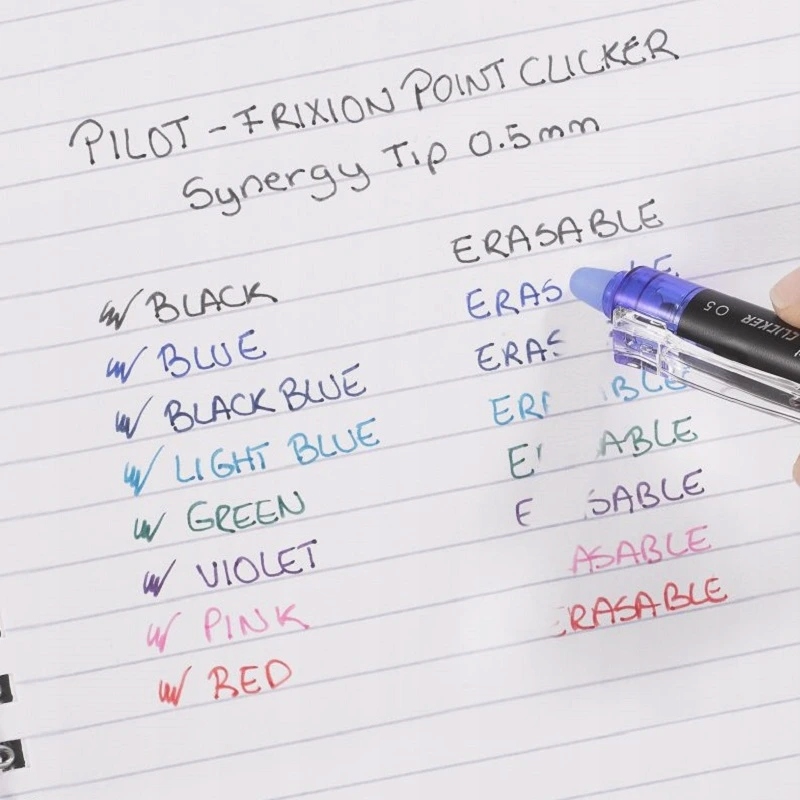 PILOT - FRIXION POINT CLICKER
Synergy Tip 0.5mm
ERASABLE
BLACK
ERAS LE
BLUE
ERAS
BLACK BLUE
ER BLE
LIGHT BLUE
E ABLE
GREEN
E SABLE
VIOLET
ASABLE
PINK
RASABLE
RED
CLICKER 05